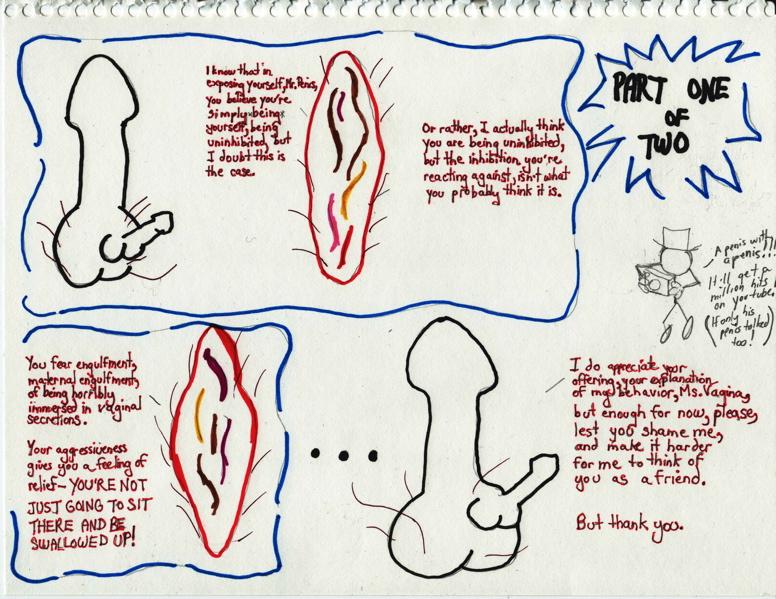 I know that in
exposing yourself, Mr. Penis,
you believe you're
simply *being*
yourself, being
uninhibited, but
I doubt this is
the case.
Or rather, I actually think
you are being uninhibited,
but the inhibition you're
reacting against, isn't what
you probably think it is.
PART ONE
OF
TWO
A penis with
a penis!!!
It'll get a
million hits
on youtube.
(If only his
penis talked
too!)
You fear engulfment,
maternal engulfment,
of being horribly
immersed in vaginal
secretions.
Your aggressiveness
gives you a feeling of
relief— YOU'RE NOT
JUST GOING TO SIT
THERE AND BE
SWALLOWED UP!
...
I do appreciate your
offering, your explanation
of my behavior, Ms. Vagina,
but enough for now, please,
lest you shame me,
and make it harder
for me to think of
you as a friend.
But thank you.